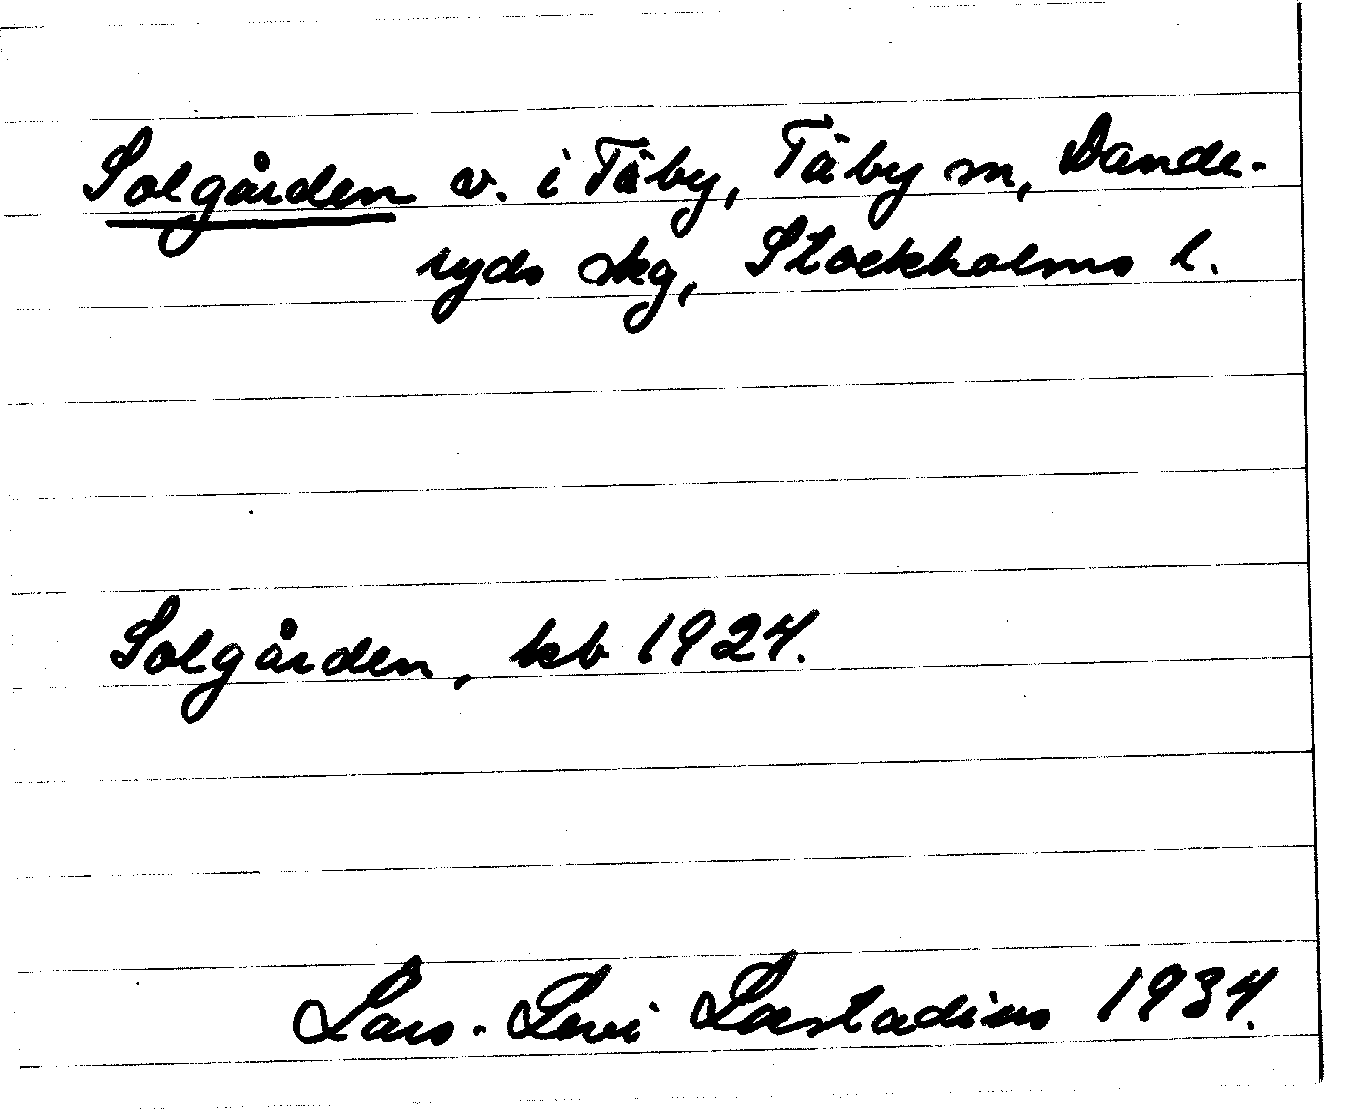 Solgården v. i Täby, Täby sn, Dande-
ryds skg, Stockholms l.
Solgården, kb 1924.
Lars-Levi Læstadius 1934.